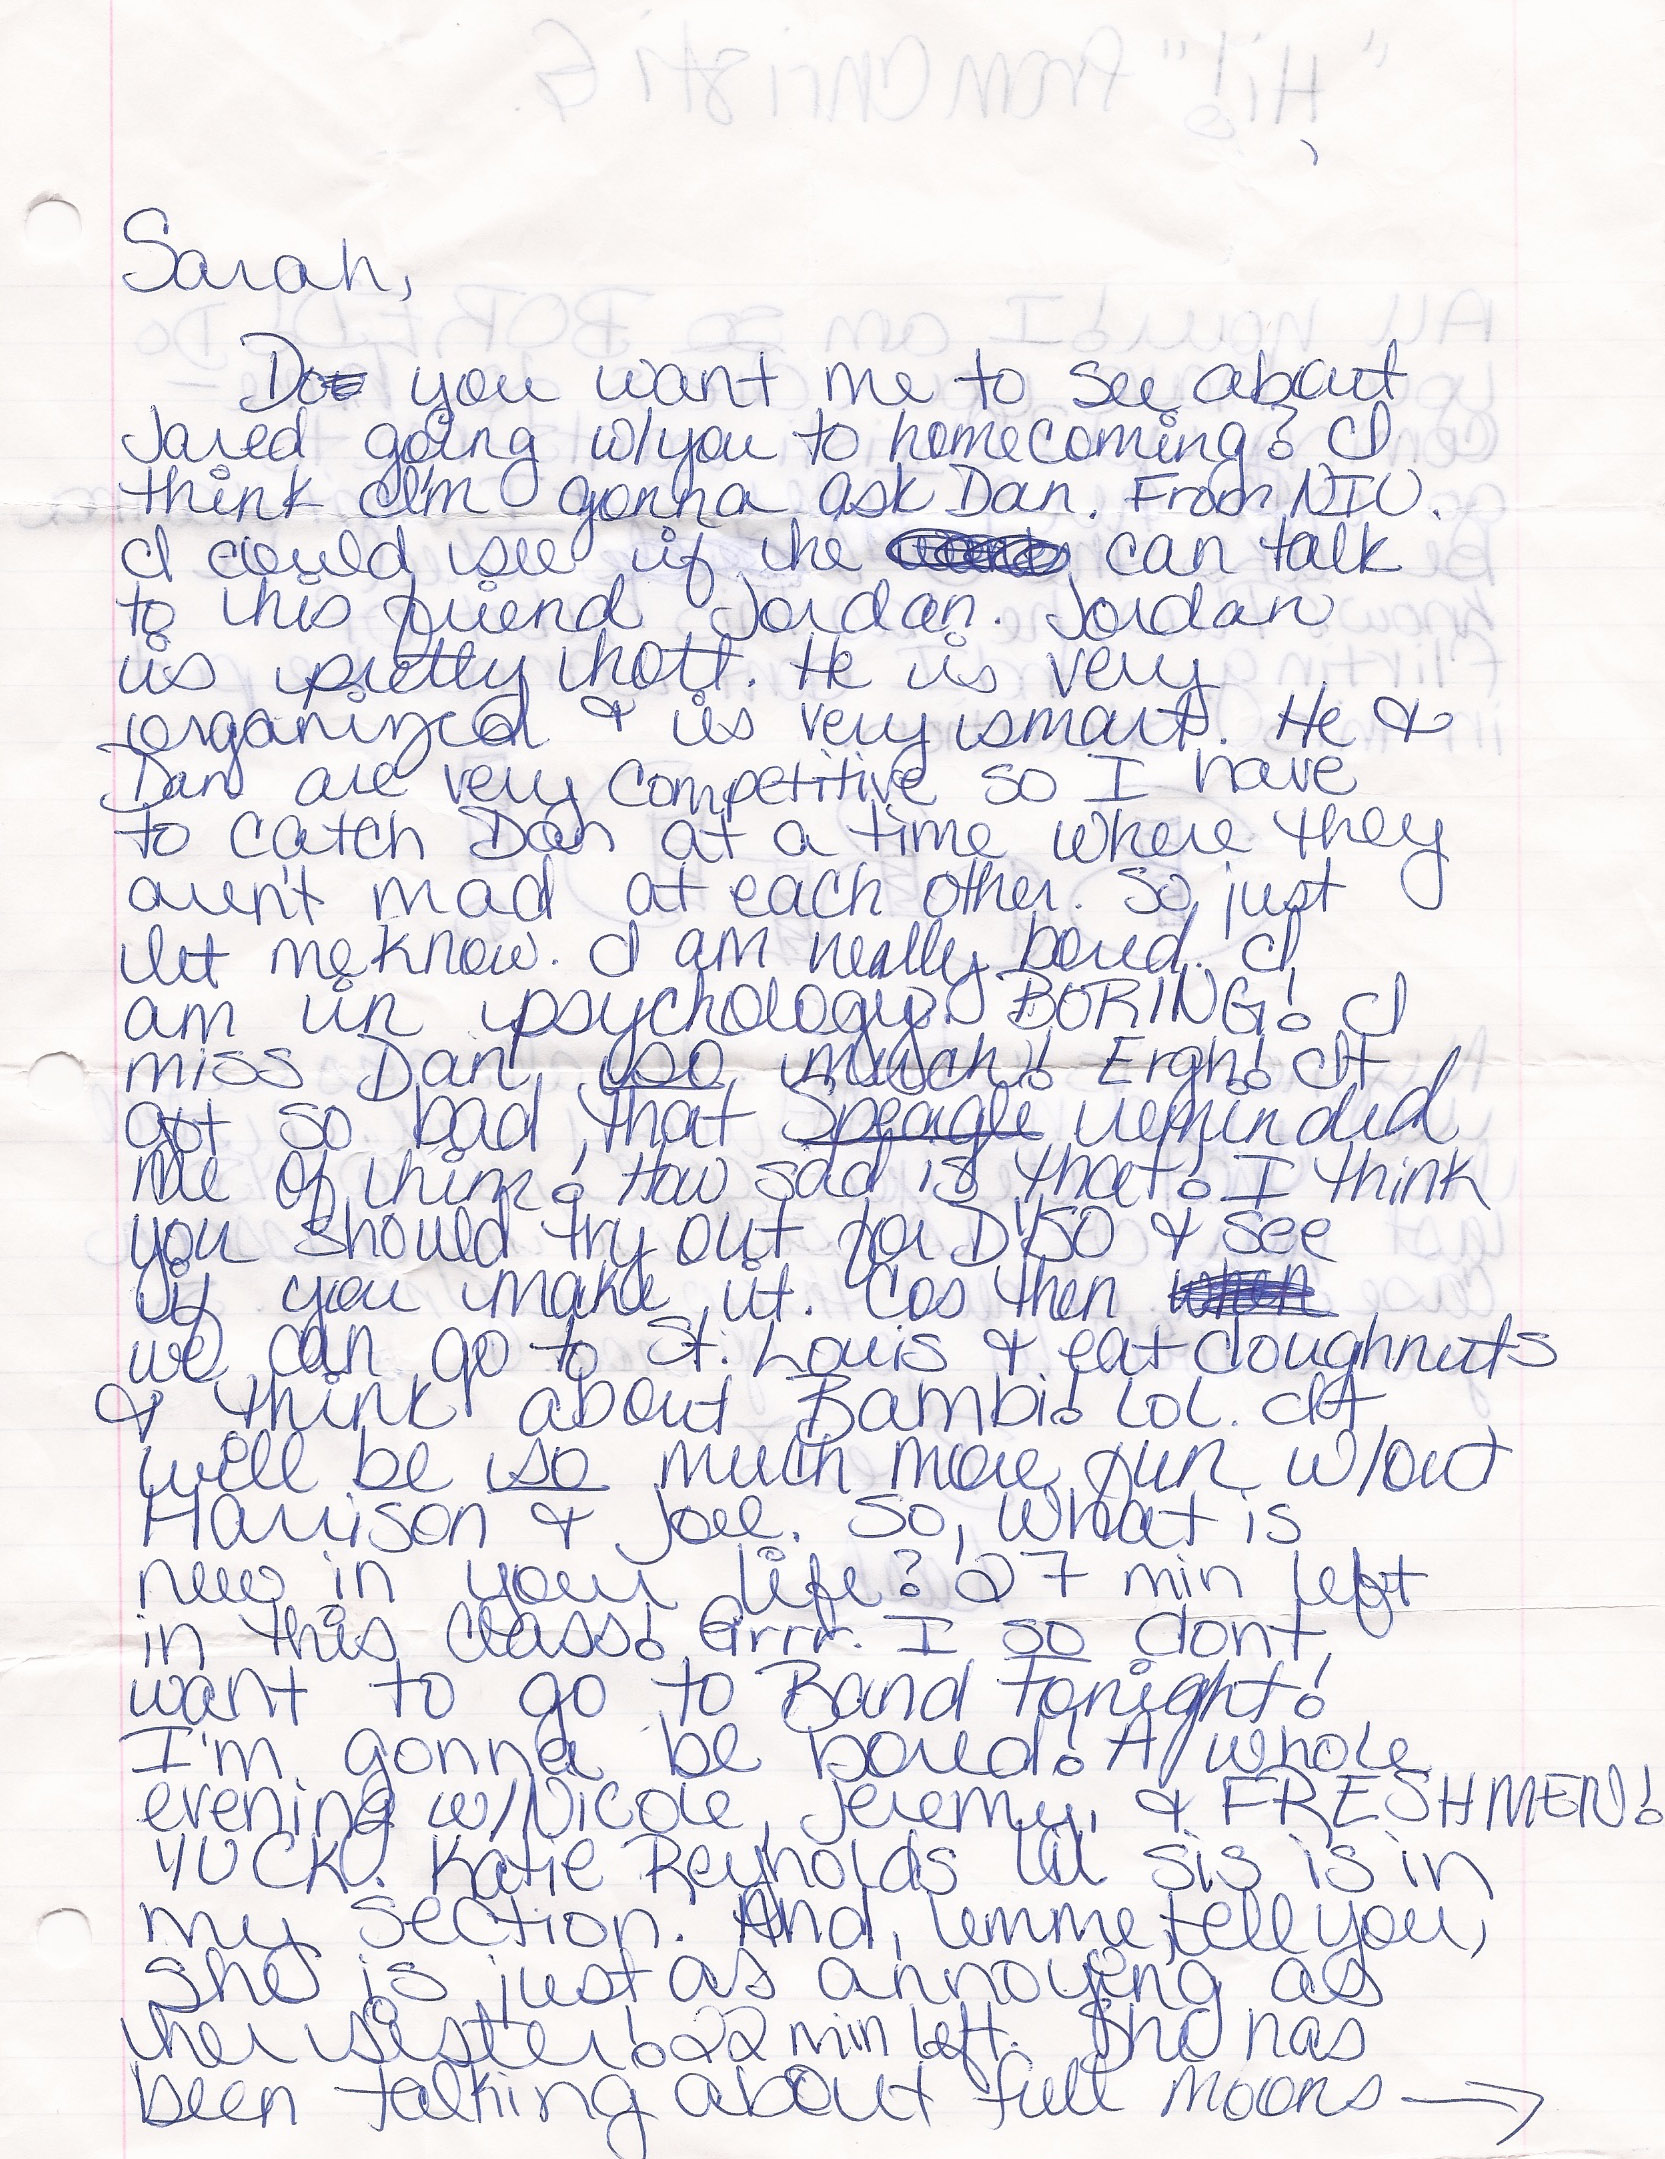 Sarah,
Do you want me to see about
Jared going w/you to homecoming? I
think I'm gonna ask Dan. From NIU.
I could see if he can talk
to his friend Jordan. Jordan
is pretty hott. He is very
organized & is very smart. He &
Dan are very competitive so I have
to catch Dan at a time where they
aren't mad at each other. So, just
let me know. I am really bored. I
am in psychology. BORING! I
miss Dan so much! Ergh! It
got so bad that Speagle reminded
me of him! How sad is that! I think
you should try out for DYSO & see
if you make it. Cos then
we can go to St. Louis & eat doughnuts
& think about Bambi! LOL. It
will be so much more fun w/out
Harrison & Joel. So, what is
new in your life? 27 min left
in this class! Grrr. I so dont
want to go to Band tonight!
I'm gonna be bored! A whole
evening w/Nicole, Jeremy, & FRESHMEN!
YUCK! Katie Reynolds lil sis is in
my section. And, lemme tell you,
she is just as annoying as
her sister! 22 min left. She has
been talking about full moons →